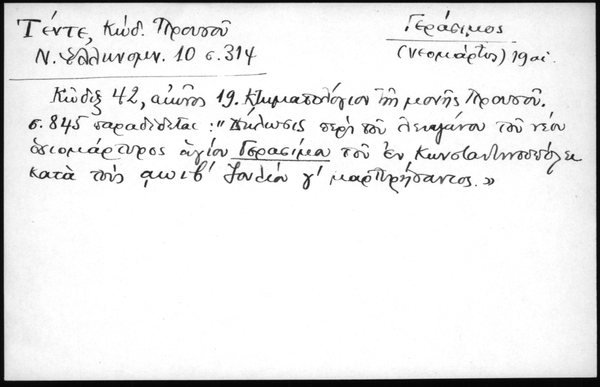 Τέντε, Κώδ. Προυσοῦ
Ν. Ἑλληνομν. 10 σ. 314
Γεράσιμος
(νεομάρτυς) 19 αἰ.
Κῶδιξ 42, αἰῶνος 19. Κτηματολόγιον τῆς μονῆς Προυσοῦ.
σ. 845 παραδίδεται: "Δήλωσις περὶ τοῦ λειψάνου τοῦ νέου
ὁσιομάρτυρος ἁγίου Γερασίμου τοῦ ἐν Κωνσταντινουπόλει
κατὰ τοὺς αωιβ' Ἰουλίου γ' μαρτυρήσαντος."